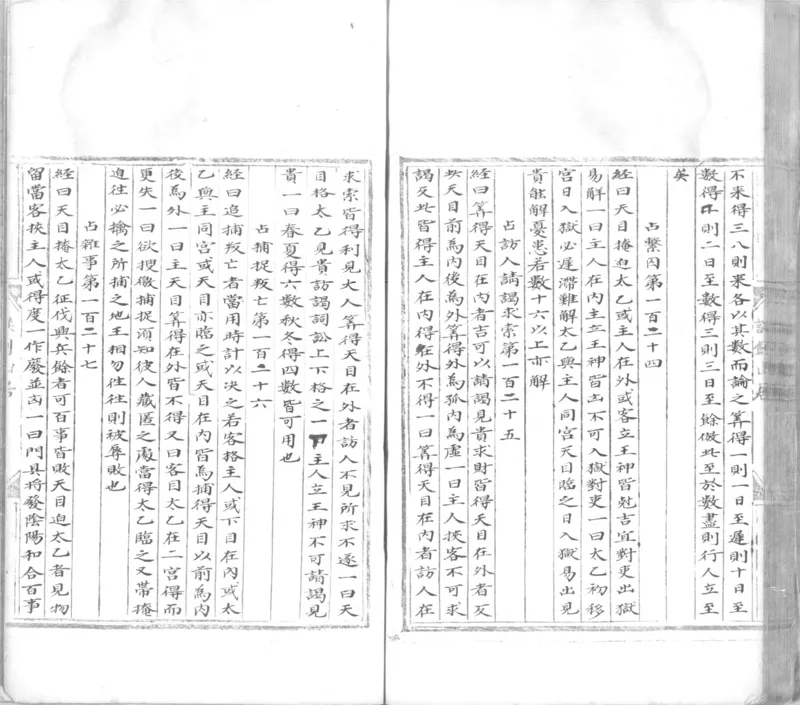 不来得三八則来各以其数而論之筭得一則一日至遲則十日至
数得二則二日至数得三則三日至餘倣此至於数盡則行人立至
矣
占繫囚第一百二十四
經曰天目掩迫太乙或主人在外或客立王神皆尅吉宜對吏出獄
易解一曰主人在内主立王神皆凶不可入獄對吏一曰太乙初移
宮日入獄必遲滯難解太乙與主人同宮天目臨之日入獄易出見
貴能解憂患若数十六以上亦解
占訪人請謁求索第一百二十五
經曰筭得天目在内者吉可以請謁見貴求財皆得天目在外者灾
以天目前為内後為外筭得外為孤内為虛一曰主人挾客不可求
謁反此皆得主人在内得在外不得一曰筭得天目在内者訪人在
求索皆得利見大人筭得天目在外者訪人不見所求不遂一曰天
目格太乙見貴訪謁詞訟上下格之一曰主人立王神不可請謁見
貴一曰春夏得六数秋冬得四数皆可用也
占捕捉叛亡第一百二十六
經曰追捕叛亡者當用時計以决之若客挌主人或下目在内或太
乙與主同宮或天目亦臨之或天目在内皆為捕得天目以前為内
後為外一曰主天目筭得在外皆不得又曰客目太乙在二宮得而
更失一曰欲搜檄捕捉須知彼人藏匿之處當得太乙臨之又帶掩
迫往必擒之所捕之地王相勿往往則被辱敗也
占雜事第一百二十七
經曰天目掩太乙征伐興兵餘者可百事皆敗天目迫太乙者見物
留當客挾主人或得度一作廢並凶一曰門具將發陰陽和合百事